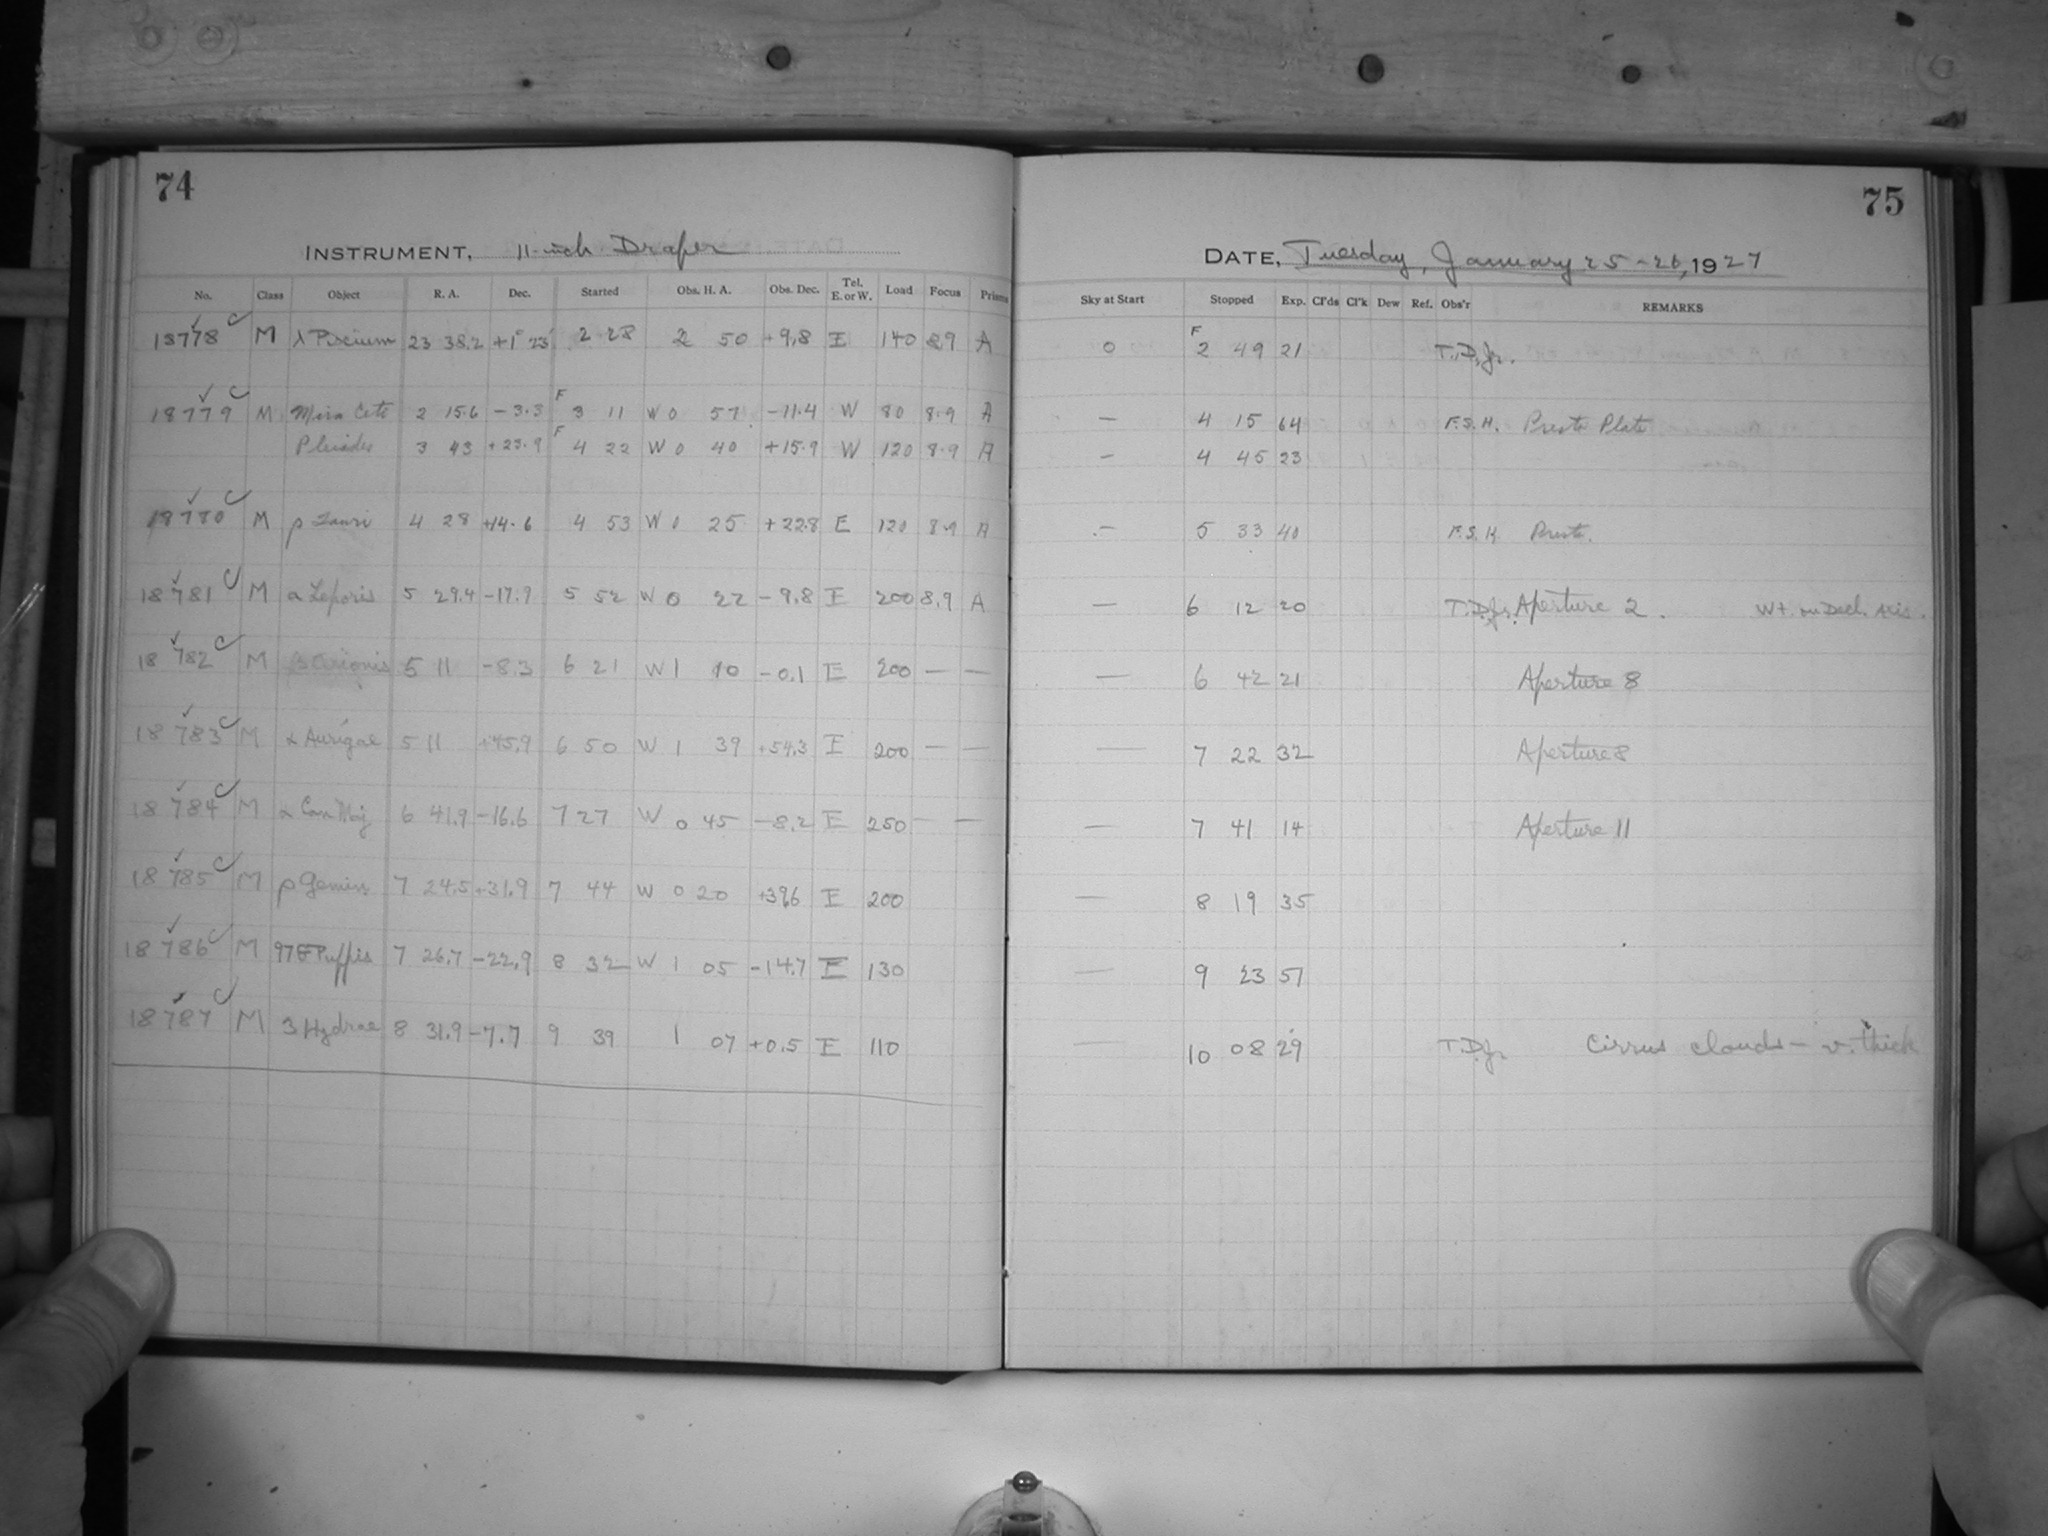 74
INSTRUMENT, 11-inch Draper
No. Class Object R. A. Dec. Started Obs. H. A. Obs. Dec. Tel. E. or W. Load Focus Prisms
18778 M λ Piscium 23 38.2 +1° 23' 2 28 2 50 +9.8 E 140 89 A
18779 M Mira Ceti 2 15.6 -3.3 F 3 11 W 0 57 -11.4 W 80 8.9 A
Pleiades 3 43 +23.9 F 4 22 W 0 40 +15.9 W 120 8.9 A
18780 M ρ Tauri 4 28 +14.6 4 53 W 0 25 +22.8 E 120 8.9 A
18781 M α Leporis 5 29.4 -17.9 5 52 W 0 22 -9.8 E 200 8.9 A
18782 M β Orionis 5 11 -8.3 6 21 W 1 10 -0.1 E 200 — —
18783 M α Aurigae 5 11 +45.9 6 50 W 1 39 +54.3 E 200 — —
18784 M α Can Maj 6 41.9 -16.6 7 27 W 0 45 -8.2 E 250 — —
18785 M ρ Gemin 7 24.5 +31.9 7 44 W 0 20 +39.6 E 200
18786 M Puppis 7 26.7 -22.9 8 32 W 1 05 -14.7 E 130
18787 M 3 Hydrae 8 31.9 -7.7 9 39 1 07 +0.5 E 110
75
DATE, Tuesday, January 25-26, 1927
Sky at Start Stopped Exp. Cl'ds Cl'k Dew Ref. Obs'r REMARKS
0 F 2 49 21 T.D.Jr.
— 4 15 64 F.S.H. Presto Plate
— 4 45 23
— 5 33 40 F.S.H. Presto.
— 6 12 20 T.D.Jr. Aperture 2. Wt. on Decl. Axis.
— 6 42 21 Aperture 8
— 7 22 32 Aperture 8
— 7 41 14 Aperture 11
— 8 19 35
— 9 23 51
— 10 08 29 T.D.Jr. Cirrus clouds — v. thick